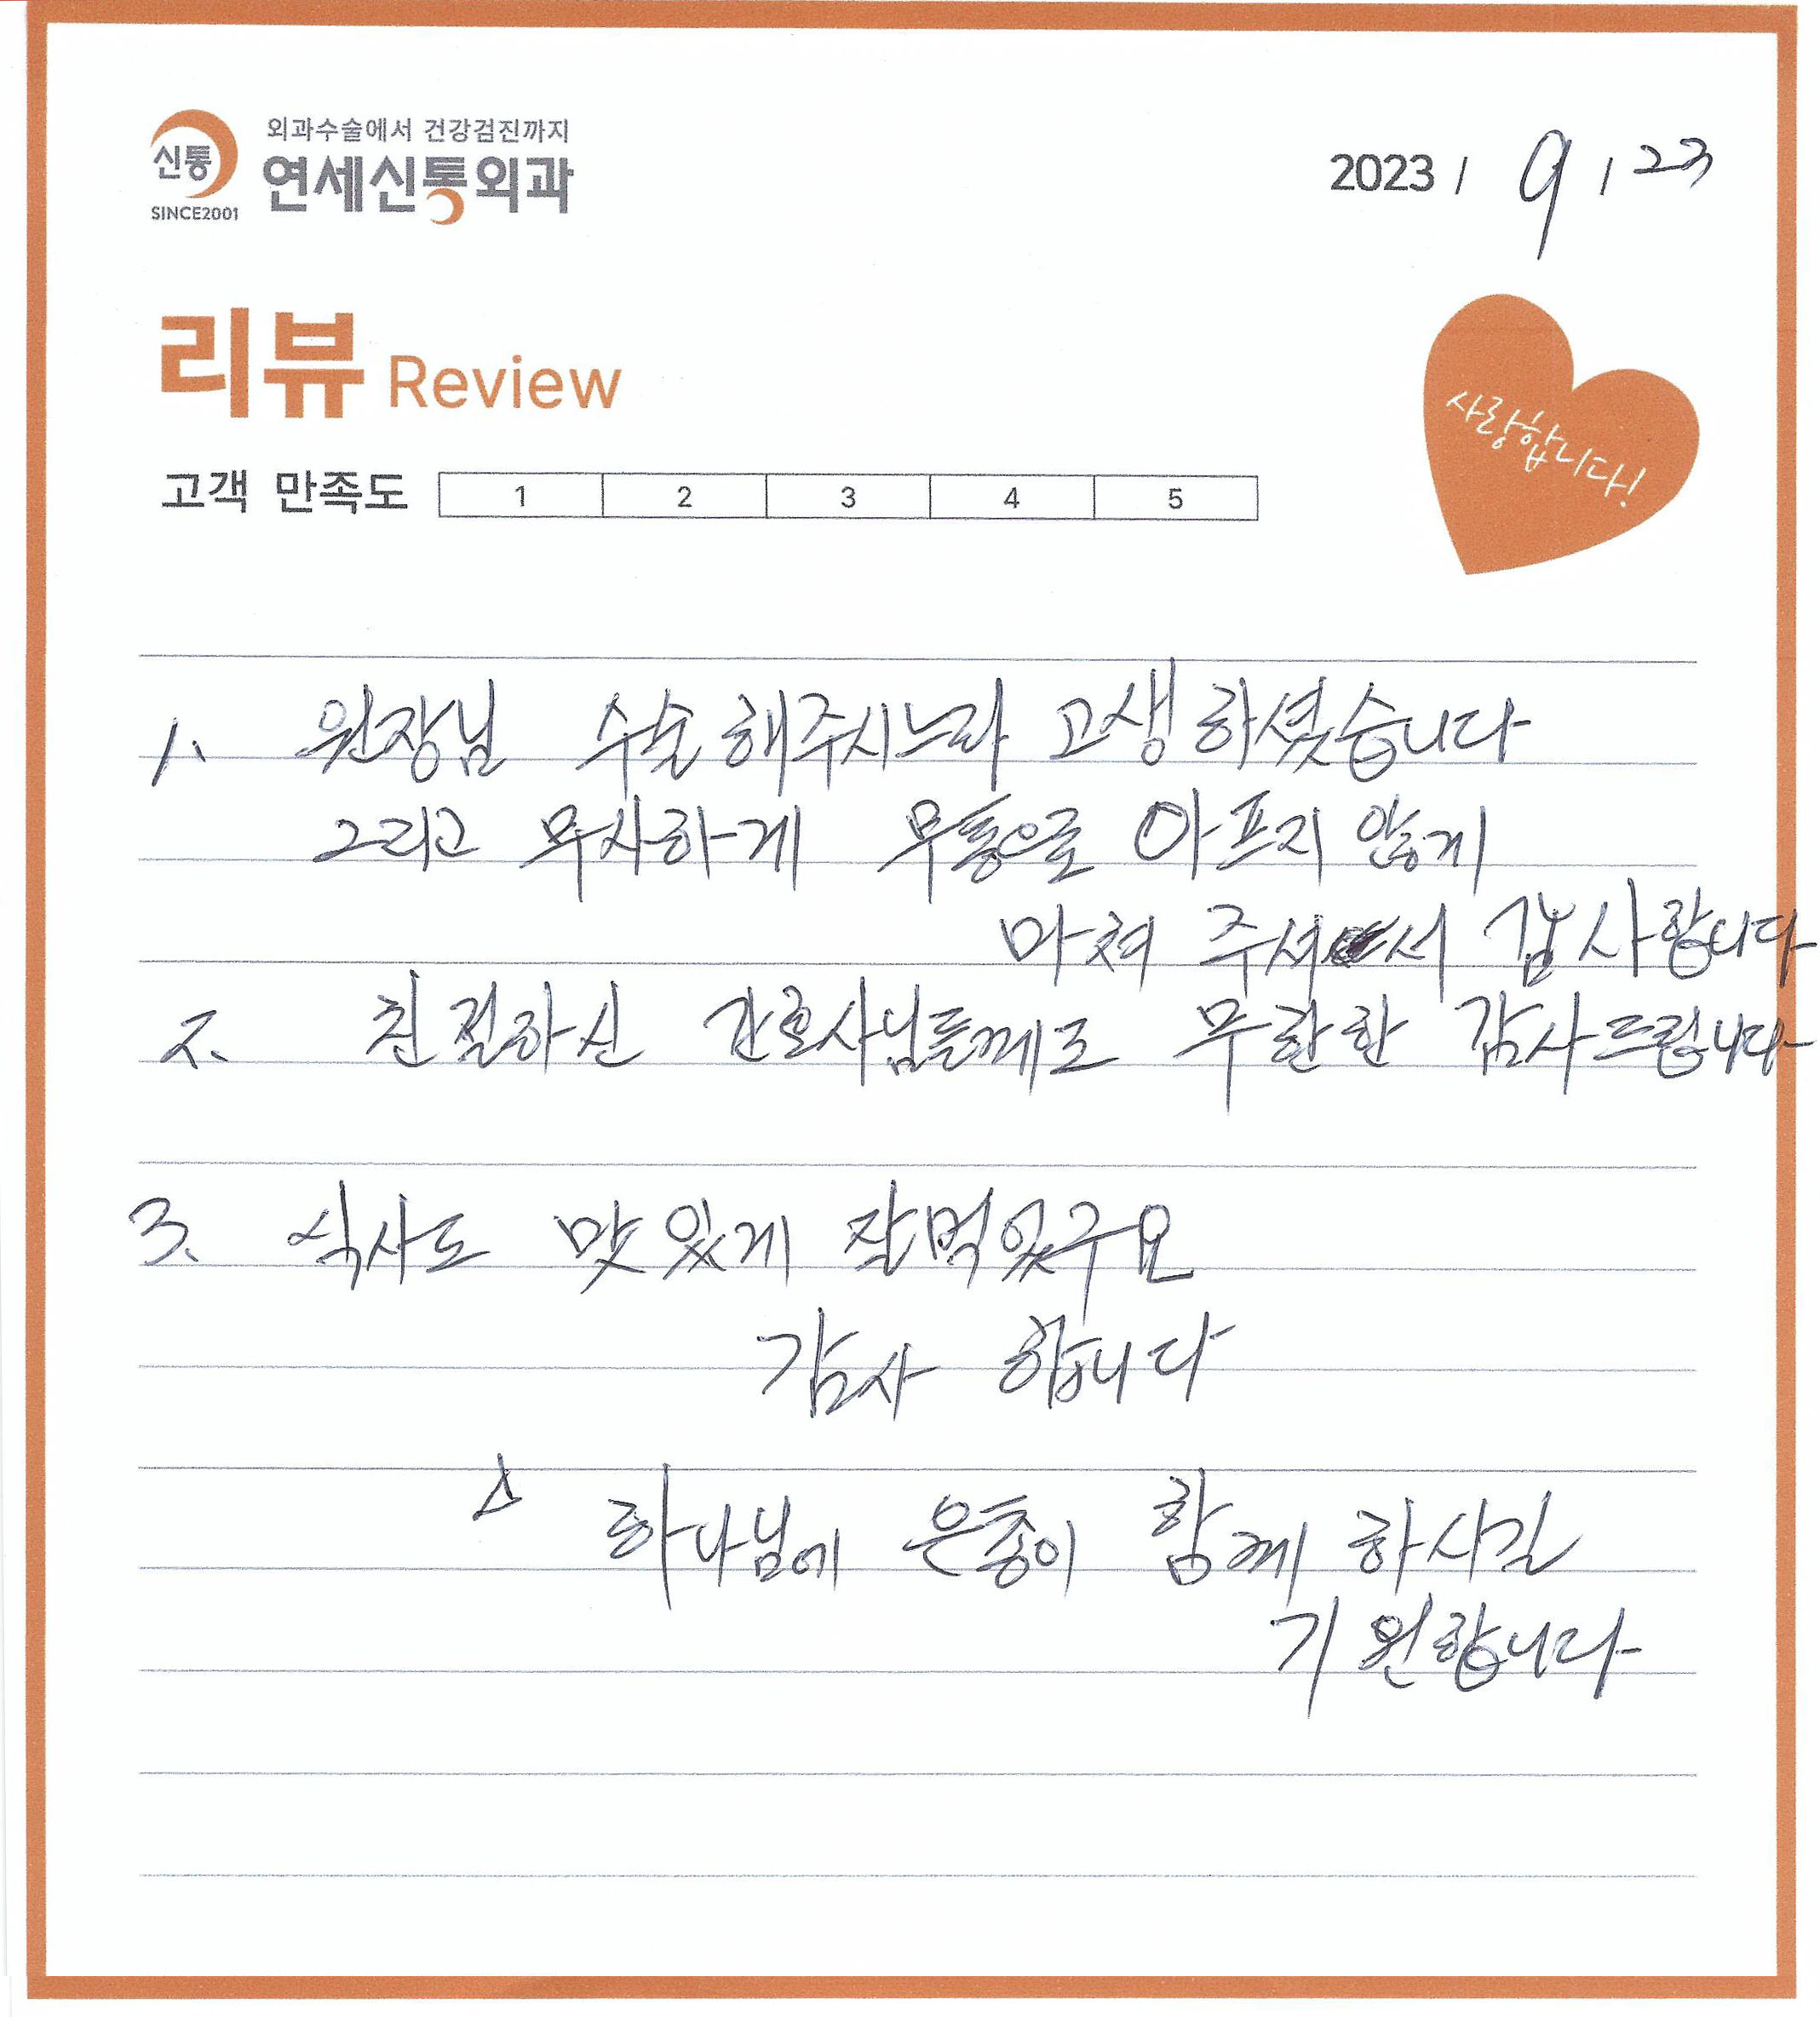 외과수술에서 건강검진까지
신통
연세신통외과
SINCE2001
2023 / 9 / 23
리뷰 Review
사랑합니다!
고객 만족도 1 2 3 4 5
1. 원장님 수술 해주시느라 고생 하셨습니다
그리고 무사하게 무통으로 아프지 않게
마쳐 주셔서 감사합니다
2. 친절하신 간호사님들께도 무한한 감사드립니다
3. 식사도 맛있게 잘먹있구요
감사 합니다
△ 하나님에 은총이 함께 하시길
기원합니다